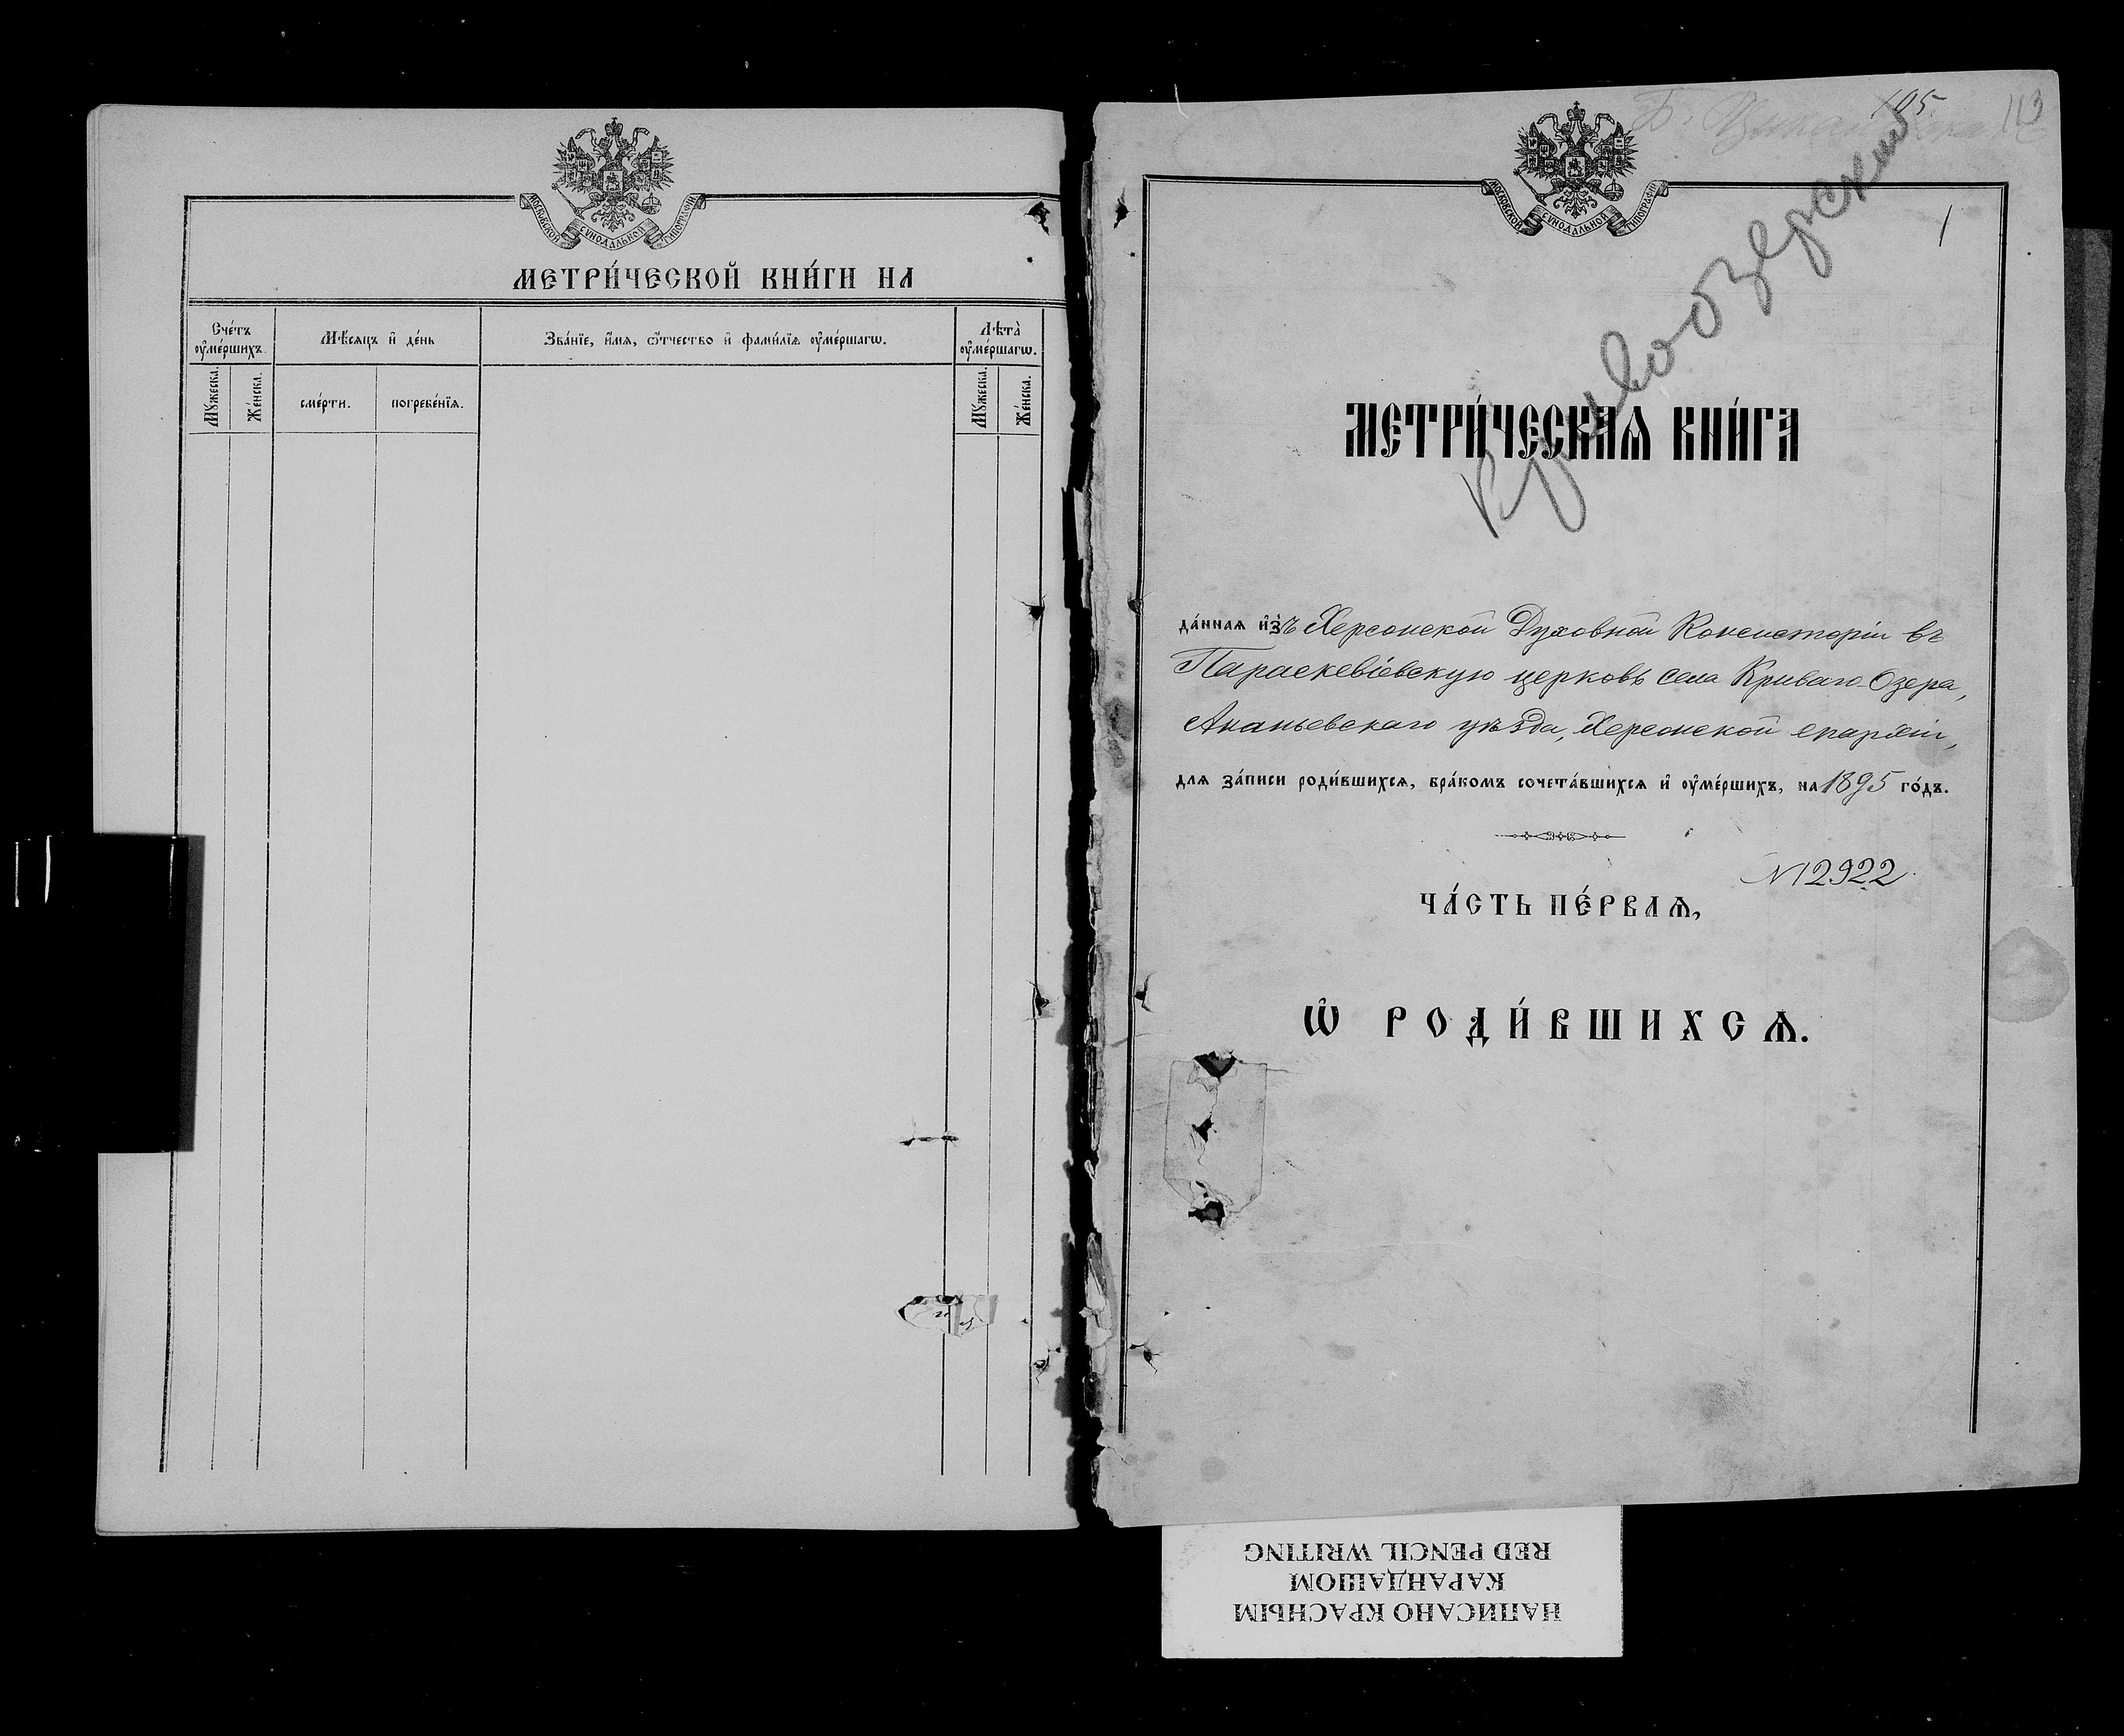 МОСКОВСКОЙ СУНОДАЛЬНОЙ ТИПОГРАФІИ
МЕТРИ́ЧЕСКОЙ КНИ́ГИ НА
Сче́тъ ᲂу҆ме́ршихъ.
Мꙋ́жеска.
Же́нска.
Мѣ́сѧцъ и҆ де́нь
сме́рти.
погребе́нїѧ.
Зва́нїе, и҆́мѧ, ѻ҆́тчество и҆ фами́лїѧ ᲂу҆ме́ршагѡ.
Лѣ́та̀ ᲂу҆ме́ршагѡ.
Мꙋ́жеска.
Же́нска.
105
113
МОСКОВСКОЙ СУНОДАЛЬНОЙ ТИПОГРАФІИ
1
Кривоозерский
МЕТРИ́ЧЕСКАѦ КНИ́ГА
да́ннаѧ и҆з̾ъ Херсонской Духовной Консисторіи въ
Параскевіевскую церковь села Криваго-Озера,
Ананьевскаго уѣзда, Херсонской епархіи,
длѧ за́писи роди́вшихсѧ, бра́комъ сочета́вшихсѧ и҆ ᲂу҆ме́ршихъ, на 1895 го́дъ.
N 12922
ЧА́СТЬ ПЕ́РВАѦ,
Ѡ҆ РОДИ́ВШИХСѦ.
НАПИСАНО КРАСНЫМ
КАРАНДАШОМ
RED PENCIL WRITING